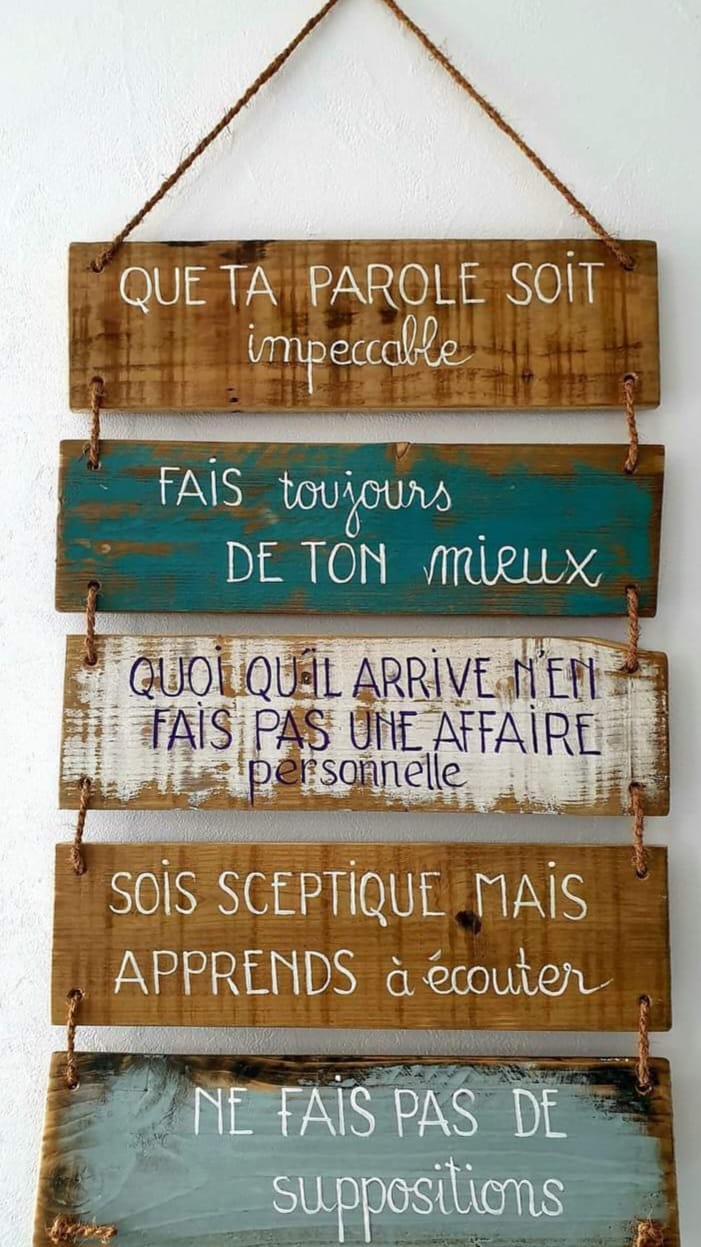 QUE TA PAROLE SOIT
impeccable
FAIS toujours
DE TON mieux
QUOI QU'IL ARRIVE N'EN
FAIS PAS UNE AFFAIRE
personnelle
SOIS SCEPTIQUE MAIS
APPRENDS à écouter
NE FAIS PAS DE
suppositions